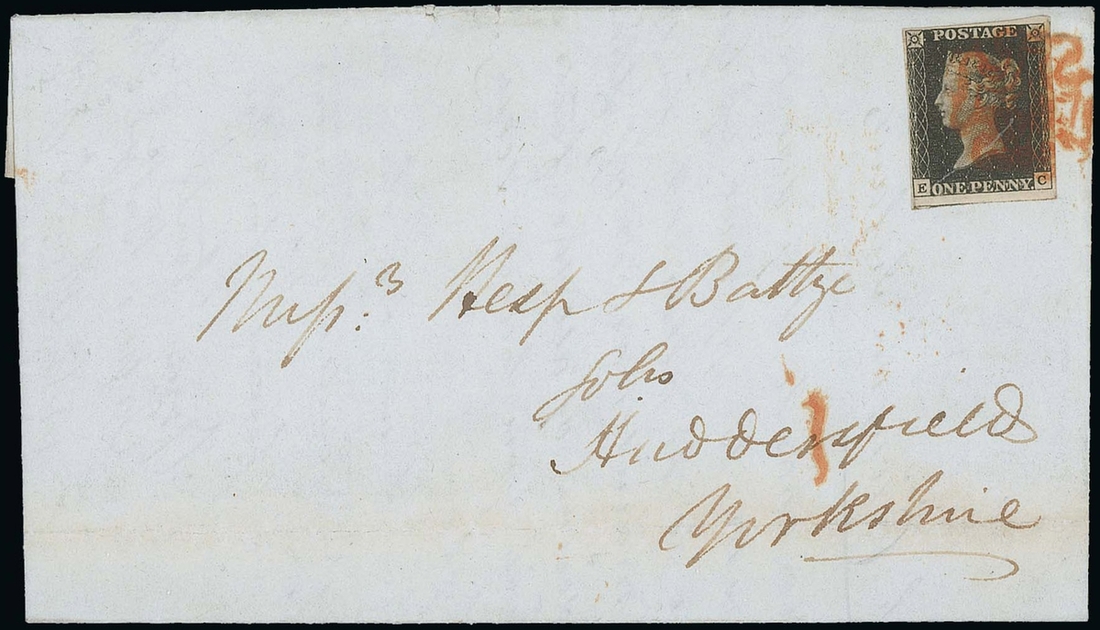 POSTAGE
E ONE PENNY C
Messrs. Hesp & Battye
Solrs
Huddersfield
Yorkshire